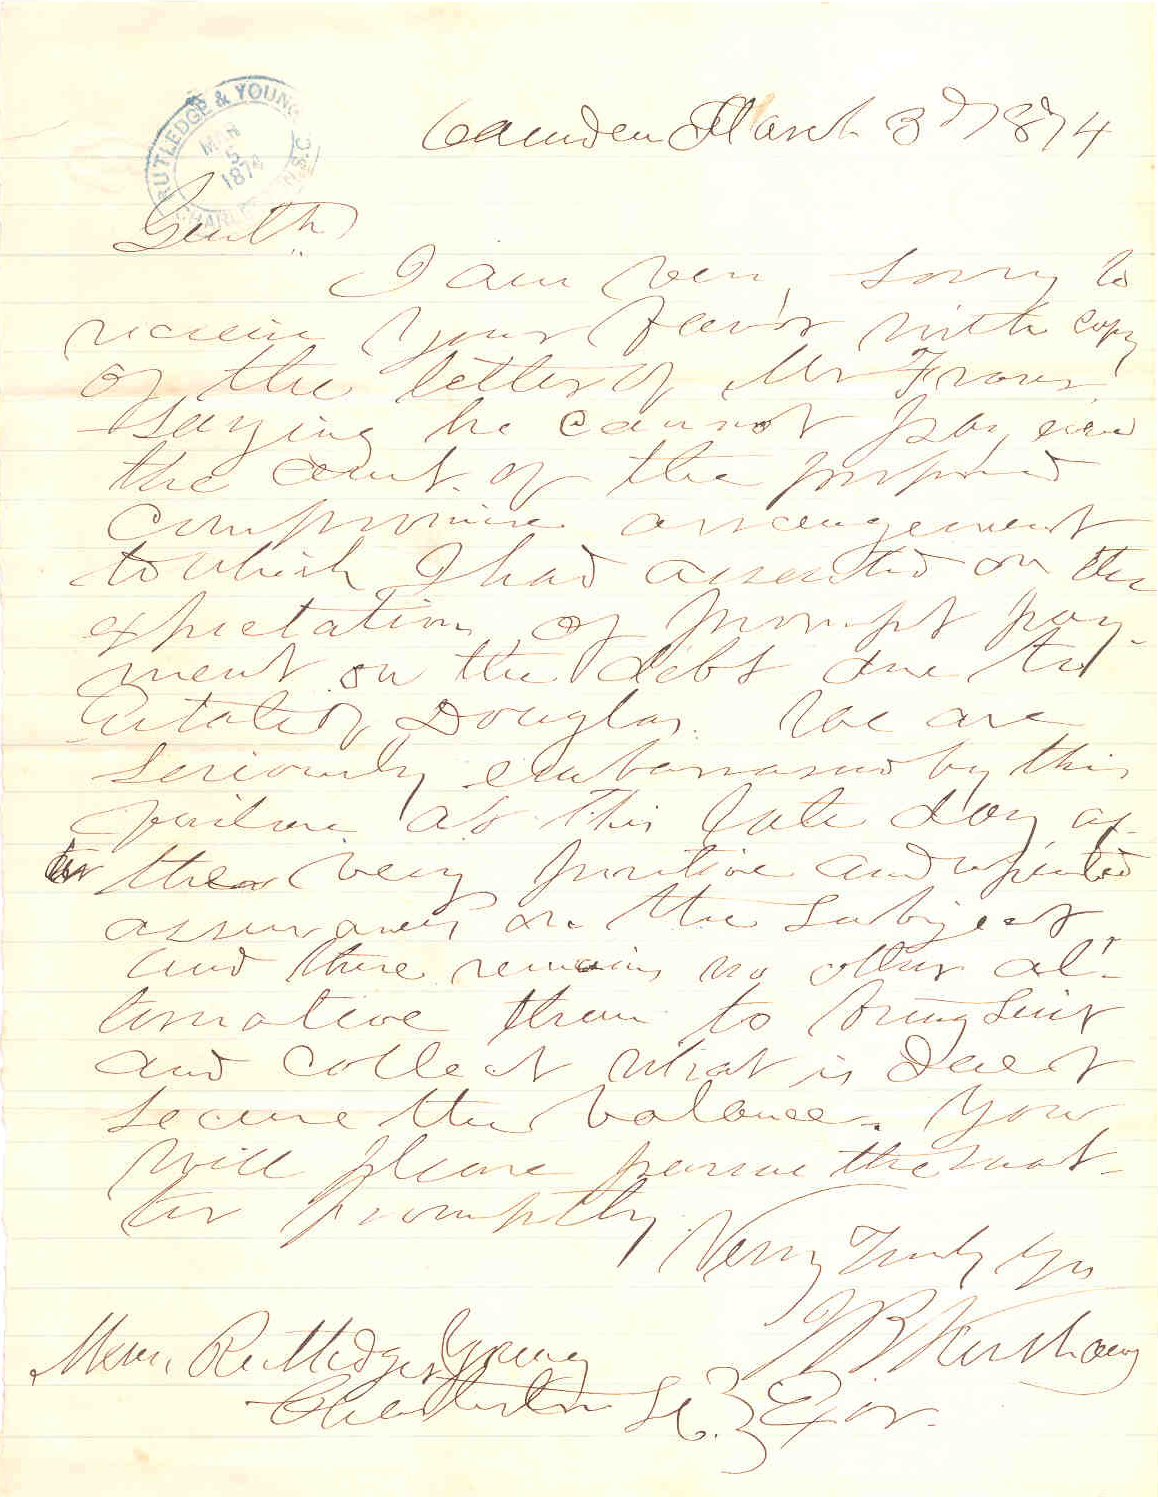 RUTLEDGE & YOUNG
MAR
5
1874
CHARLESTON S.C.
Camden March 3d 1874
Gentln
I am very sorry to
receive your favor with copy
of the letter of Mr Fraser
saying he cannot pay even
the amt. of the proposed
compromise arrangement
to which I had assented on the
expectation of prompt pay-
ment on the debt due the
Estate of Douglas. We are
seriously embarrassed by this
failure at this late day af-
ter the very positive and repeated
assurances on the subject
and there remains no other al-
ternative than to bring suit
and collect what is due &
secure the balance. You
will please pursue the mat-
ter promptly.
Very Truly Yrs
J B Kershaw
Exor.
Messrs Rutledge & Young
Charleston S C.